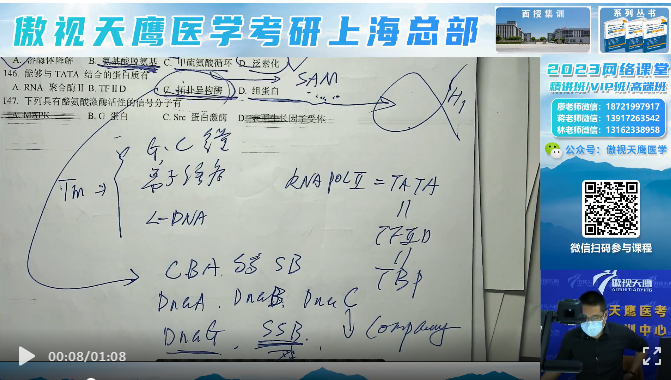 傲视天鹰医学考研上海总部
面授集训
系列丛书
2023网络课堂
精讲班/VIP班/高端班
廖老师微信：18721997917
蒋老师微信：13917263542
林老师微信：13162338958
公众号：傲视天鹰医学
微信扫码参与课程
傲视天鹰
天鹰医考
训中心
B. 氨基酸脱氨基 C. 甲硫氨酸循环 D. 泛素化
146. 能够与 TATA 结合的蛋白质有
A. RNA 聚合酶II B. TFIID C. 拓扑异构酶 D. 组蛋白
147. 下列具有酪氨酸激酶活性的信号分子有
A. MAPK B. G 蛋白 C. Src 蛋白激酶 D. 表皮生长因子受体
SAM
H1
G.C
Tm
L-DNA
RNA pol II = TATA
TFIID
TBP
CBA. SSB
DnaA. DnaB. DnaC
DnaG. SSB.
Company
00:08/01:08